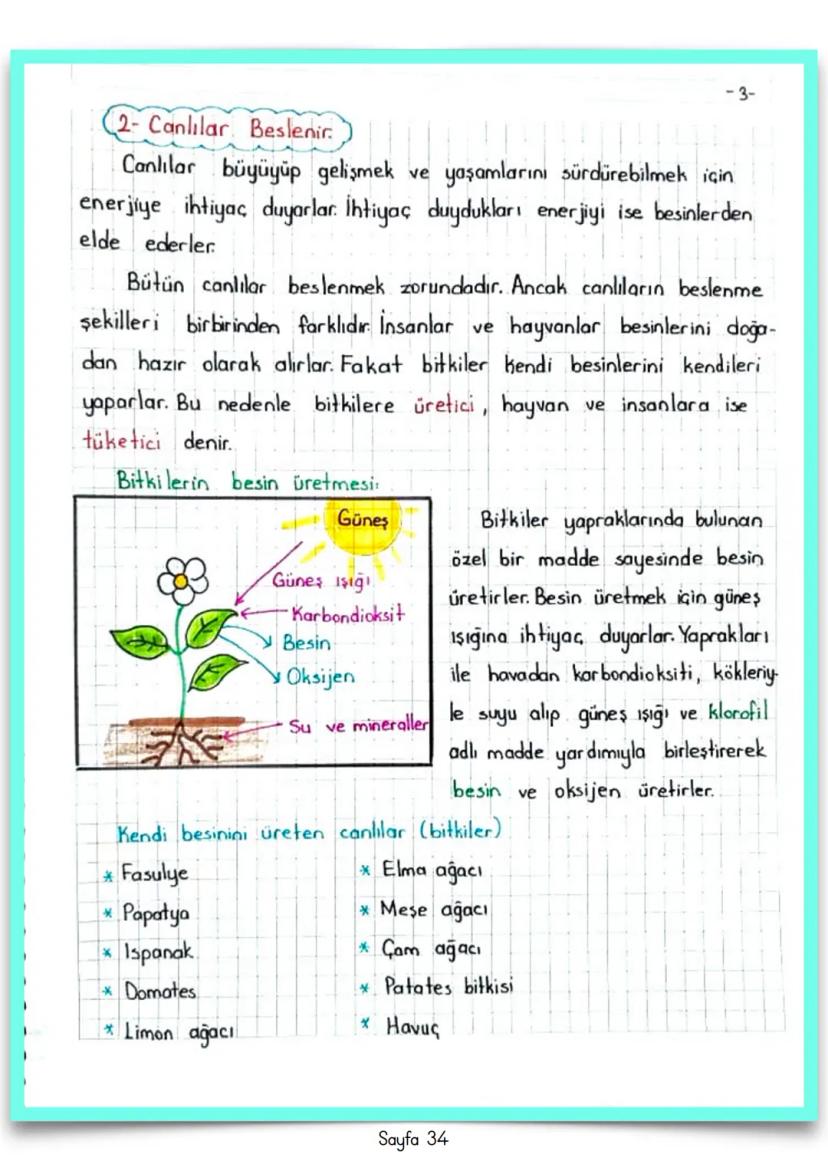 -3-
2- Canlılar Beslenir.
Canlılar büyüyüp gelişmek ve yaşamlarını sürdürebilmek için
enerjiye ihtiyaç duyarlar. İhtiyaç duydukları enerjiyi ise besinlerden
elde ederler.
Bütün canlılar beslenmek zorundadır. Ancak canlıların beslenme
şekilleri birbirinden farklıdır. İnsanlar ve hayvanlar besinlerini doğa-
dan hazır olarak alırlar. Fakat bitkiler kendi besinlerini kendileri
yaparlar. Bu nedenle bitkilere üretici, hayvan ve insanlara ise
tüketici denir.
Bitkilerin besin üretmesi:
Güneş
Güneş ışığı
Karbondioksit
Besin
Oksijen
Su ve mineraller
Bitkiler yapraklarında bulunan
özel bir madde sayesinde besin
üretirler. Besin üretmek için güneş
ışığına ihtiyaç duyarlar. Yaprakları
ile havadan karbondioksiti, kökleriy-
le suyu alıp güneş ışığı ve klorofil
adlı madde yardımıyla birleştirerek
besin ve oksijen üretirler.
Kendi besinini üreten canlılar (bitkiler)
* Fasulye
* Papatya
* Ispanak
* Domates
* Limon ağacı
* Elma ağacı
* Meşe ağacı
* Çam ağacı
* Patates bitkisi
* Havuç
Sayfa 34